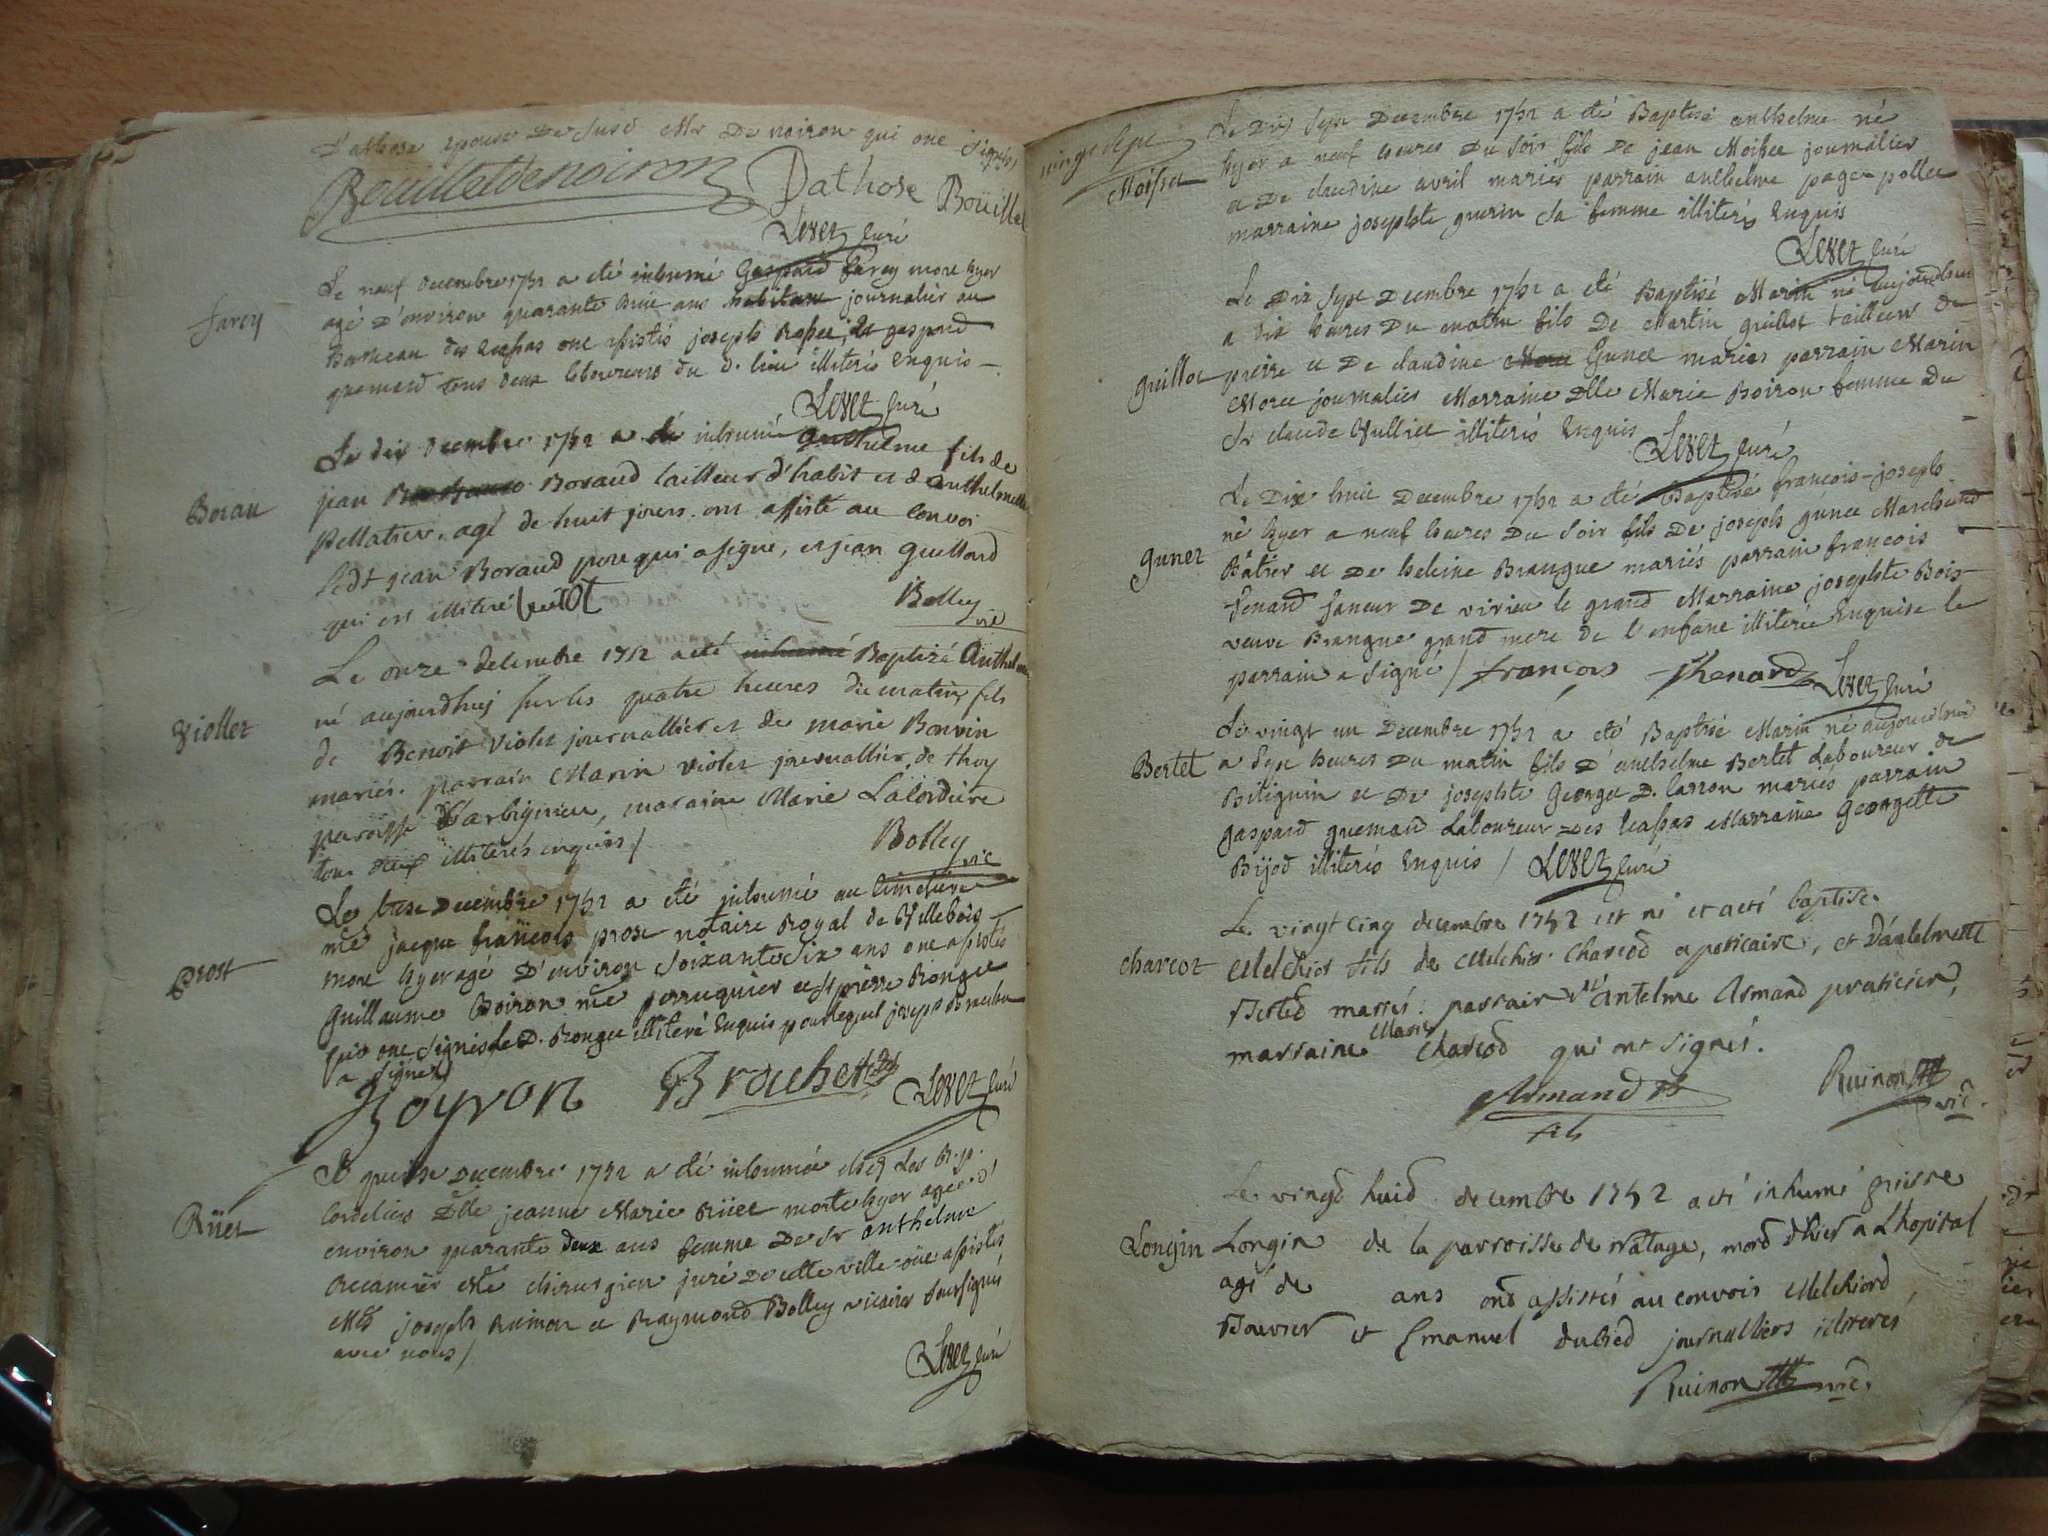 D'athose epouse De Susd Mr De noiron qui ont signés
Bouillet de noiron Dathose Boüillet
Levet Curé
farcy
Le neuf decembre 1752 a eté inhumé Gaspard farcy mort hyer
agé D'environ quarante huit ans habitant journalier au
hameau des ont assistés joseph et gaspard
guemard tous deux laboureurs du d. lieu illiterés Enquis
Levet Curé
Boran
Le dix decembre 1752 a eté inhumé anthelme fils de
jean Boraud tailleur d'habit et d'anthelmette
Pellatier, agé de huit jours. ont assisté au Convoi
ledt jean Boraud pere qui a signé, et jean guillard
qui est illiteré
Bolley vic
Viollet
Le onze decembre 1752 a eté inhumé Baptizé Anthelme
né aujourdhuy sur les quatre heures du matin, fils
de Benoit violet journallier et de marie Bonvin
mariés. parrain Marin violet journallier de thoy
paroisse d'arbignieu, maraine Marie Lalordiere
tous deux illiterés enquis /
Bolley vic
Prost
Le treze Decembre 1752 a eté inhumé au Cimetiere
me jacque françois prost notaire Royal de Villebois
mort hyer agé D'environ soixante six ans ont assistés
guillaume Boiron me perruquier et sr pierre Ronget
qui ont signés le D. Ronget illiteré Enquis pour lequel joseph Brachet
a signé
Boyron Brachet Levet Curé
Rüet
Le quinse Decembre 1752 a eté inhumée chez Les R. p.
Cordeliers Dlle jeanne Marie Rüet morte hyer agée d'
environ quarante deux ans femme De Sr anthelme
Recamier Me chirurgien juré De cette ville ont assistés
Mrs joseph Ruinon et Raymond Bolley vicaires soussignés
avec nous /
Levet Curé
vingt sept
Moisset
Le Dix sept Decembre 1752 a eté Baptisé anthelme né
hyer a neuf heures Du soir fils De jean Moisset journalier
et De claudine avril mariés parrain anthelme paget pollet
marraine josephte guerin sa femme illiterés Enquis
Levet Curé
guillot
Le Dix sept Decembre 1752 a eté Baptisé Marin né aujourdhui
a dix heures Du matin fils De Martin guillot tailleur de
pierre et De claudine Gunet mariés parrain Marin
Moret journalier Marraine Dlle Marie Boiron femme Du
Sr claude Vulliet illiterés Enquis
Levet Curé
gunet
Le Dix huit Decembre 1752 a eté Baptisé françois-joseph
né hyer a neuf heures Du soir fils De joseph gunet Marchand
Bâtier et De heleine Brangue mariés parrain françois
Fenard faneur De virieu le grand Marraine josephte Bois
veuve Brangue grand mere de l'enfant illiterée Enquise le
parrain a signé / françois thenard Levet Curé
Bertet
Le vingt un Decembre 1752 a eté Baptisé Marin né aujourdhui
a sept heures Du matin fils D'anthelme Bertet Laboureur de
Bitignin et De josephte George D. Lasson mariés parrain
gaspard guemard Laboureur Des Marraine Georgette
Bijod illiterés Enquis / Levet Curé
charcot
Le vingt cinq decembre 1752 est né et a eté baptisé
Melchior fils de Melchior Charcod apoticaire, et D'antelmette
Tested mariés. parrain Mr antelme Armand praticien,
marraine Marie Charcod qui ont signés.
Armand fils
Ruinon vic.
Longin
Le vingt huid decembre 1752 a eté inhumé pierre
Longin de la parroisse de nattage, mord d'hier a Lhopital
agé de ans ond assistés au convois Melchiord
Bouvier et Emanuel dubied journalliers iliterés
Ruinon vic.